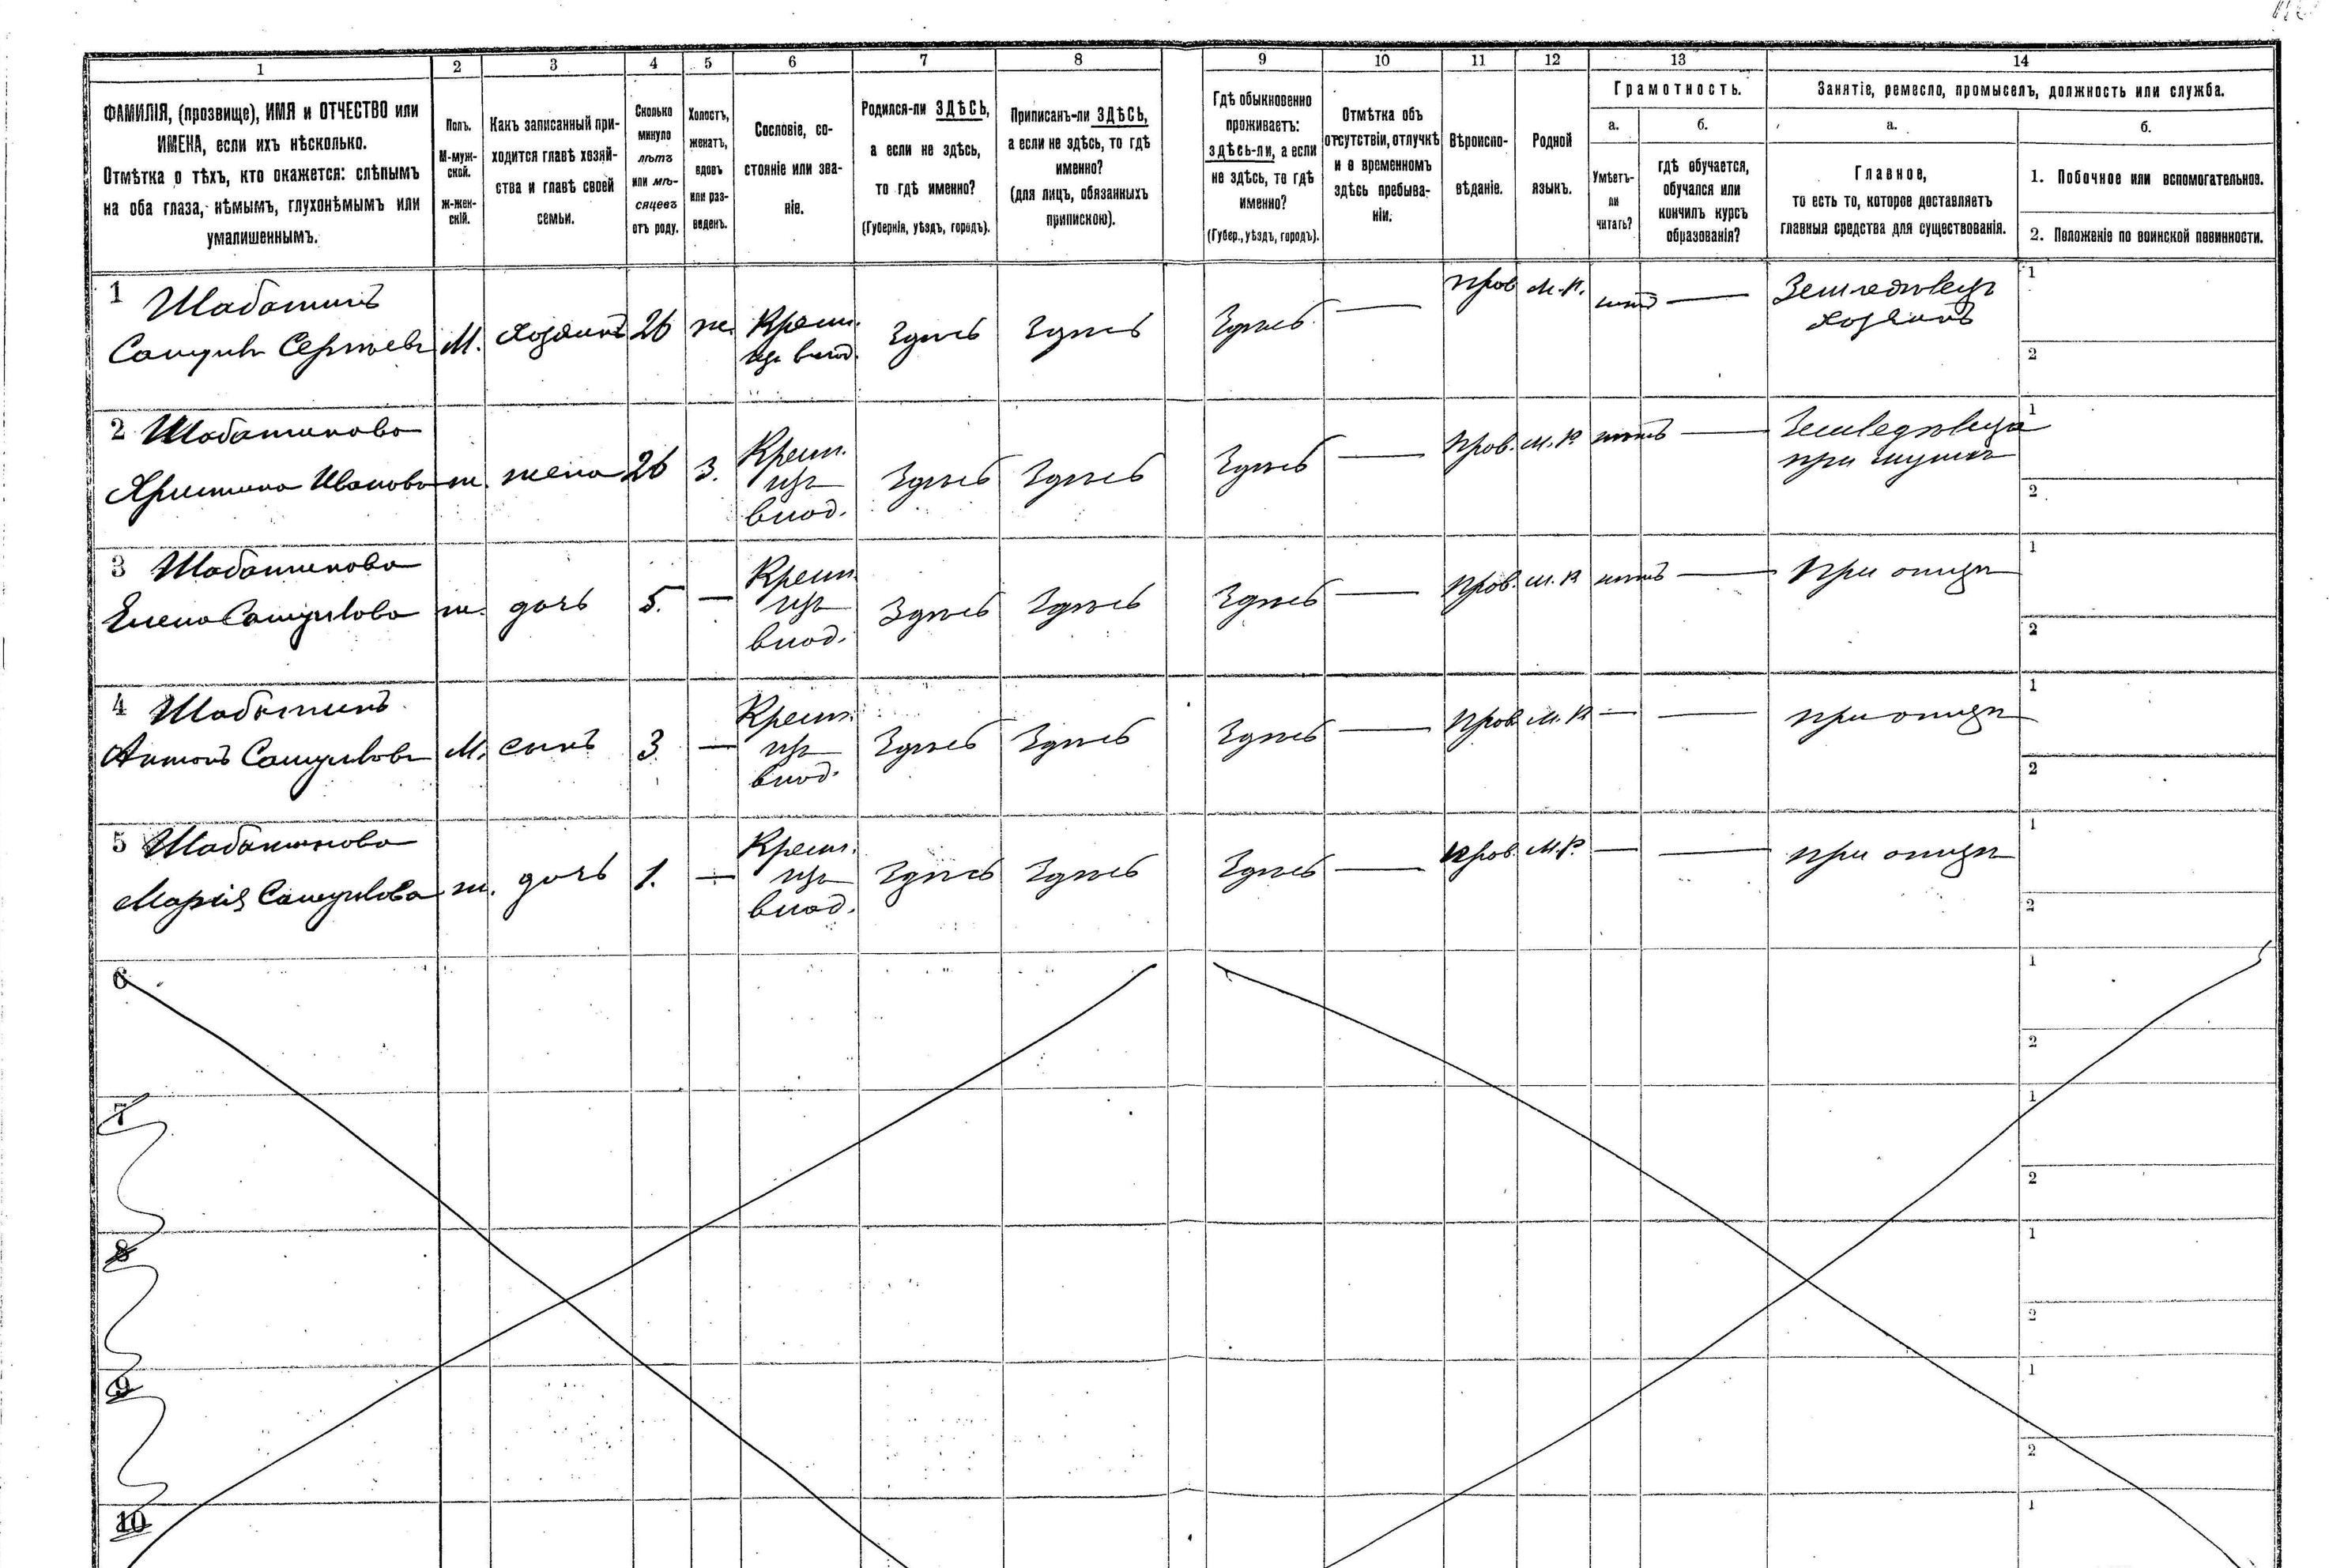 1 2 3 4 5 6 7 8 9 10 11 12 13 14
ФАМИЛІЯ, (прозвище), ИМЯ и ОТЧЕСТВО или
ИМЕНА, если ихъ нѣсколько.
Отмѣтка о тѣхъ, кто окажется: слѣпымъ
на оба глаза, нѣмымъ, глухонѣмымъ или
умалишеннымъ.
Полъ.
М-муж-
ской.
Ж-жен-
скій.
Какъ записанный при-
ходится главѣ хозяй-
ства и главѣ своей
семьи.
Сколько
минуло
лѣтъ
или мѣ-
сяцевъ
отъ роду.
Холостъ,
женатъ,
вдовъ
или раз-
веденъ.
Сословіе, со-
стояніе или зва-
ніе.
Родился-ли ЗДѢСЬ,
а если не здѣсь,
то гдѣ именно?
(Губернія, уѣздъ, городъ).
Приписанъ-ли ЗДѢСЬ,
а если не здѣсь, то гдѣ
именно?
(для лицъ, обязанныхъ
припискою).
Гдѣ обыкновенно
проживаетъ:
здѣсь-ли, а если
не здѣсь, то гдѣ
именно?
(Губер., уѣздъ, городъ).
Отмѣтка объ
отсутствіи, отлучкѣ
и о временномъ
здѣсь пребыва-
ніи.
Вѣроиспо-
вѣданіе.
Родной
языкъ.
Грамотность.
а.
Умѣетъ-
ли
читать?
б.
гдѣ обучается,
обучался или
кончилъ курсъ
образованія?
Занятіе, ремесло, промыселъ, должность или служба.
а.
Главное,
то есть то, которое доставляетъ
главныя средства для существованія.
б.
1. Побочное или вспомогательное.
2. Положеніе по воинской повинности.
1 Шабатинъ
Самуилъ Сергѣевъ М. хозяинъ 26 ж. Крест.
изъ влад. Здѣсь Здѣсь Здѣсь — Прав. М.Р. нѣтъ — Земледѣлец
хозяинъ
1
2
2 Шабатинова
Христина Иванова ж. жена 26 З. Крест.
изъ
влад. Здѣсь Здѣсь Здѣсь — Прав. М.Р. нѣтъ — Земледѣлица
при мужѣ
1
2
3 Шабатинова
Елена Самуилова ж. дочь 5. — Крест.
изъ
влад. Здѣсь Здѣсь Здѣсь — Прав. М.Р нѣтъ — При отцѣ
1
2
4 Шабатинъ
Антонъ Самуиловъ М. сынъ 3 — Крест.
изъ
влад. Здѣсь Здѣсь Здѣсь — Прав. М.Р — — при отцѣ
1
2
5 Шабатинова
Марія Самуилова ж. дочь 1. — Крест.
изъ
влад. Здѣсь Здѣсь Здѣсь — Прав. М.Р. — — при отцѣ
1
2
6
1
2
7
1
2
8
1
2
9
1
2
10
1